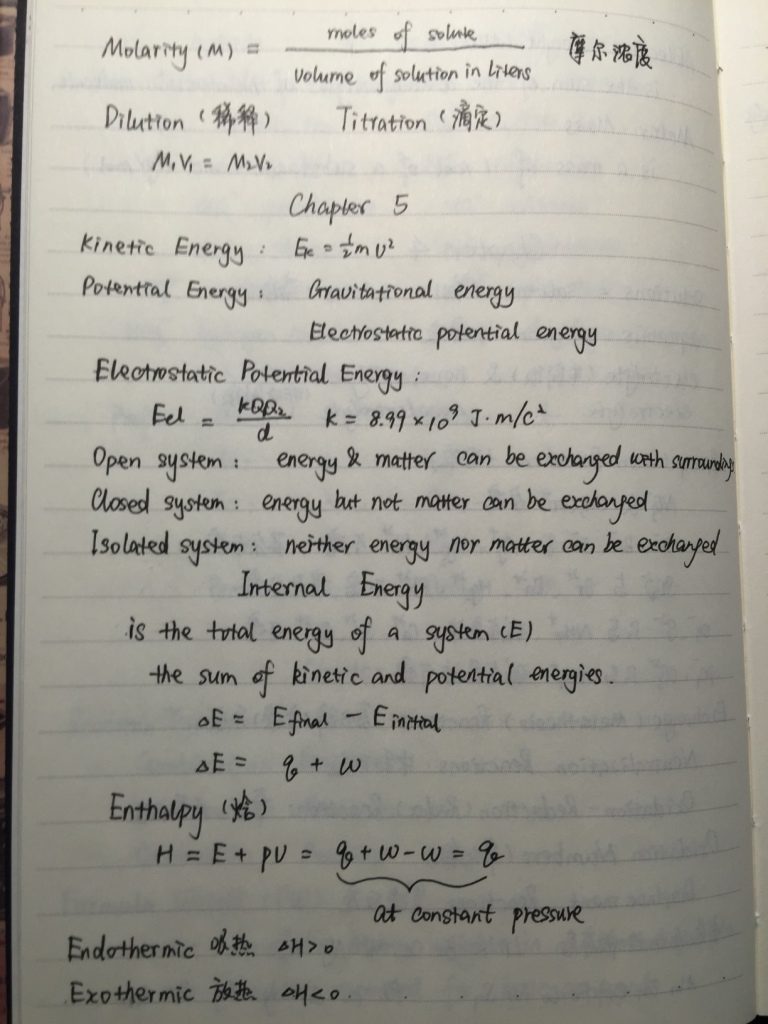 Molarity (M) = moles of solute / volume of solution in liters 摩尔浓度
Dilution (稀释) Titration (滴定)
M₁V₁ = M₂V₂
Chapter 5
Kinetic Energy : Ek = ½ m υ²
Potential Energy : Gravitational energy
Electrostatic potential energy
Electrostatic Potential Energy :
Eel = kQQ₂ / d k = 8.99 × 10⁹ J·m/c²
Open system : energy & matter can be exchanged with surroundings
Closed system : energy but not matter can be exchanged
Isolated system : neither energy nor matter can be exchanged
Internal Energy
is the total energy of a system (E)
the sum of kinetic and potential energies.
ΔE = E final − E initial
ΔE = q + w
Enthalpy (焓)
H = E + PV = q + w − w = q
at constant pressure
Endothermic 吸热 ΔH>0
Exothermic 放热 ΔH<0.